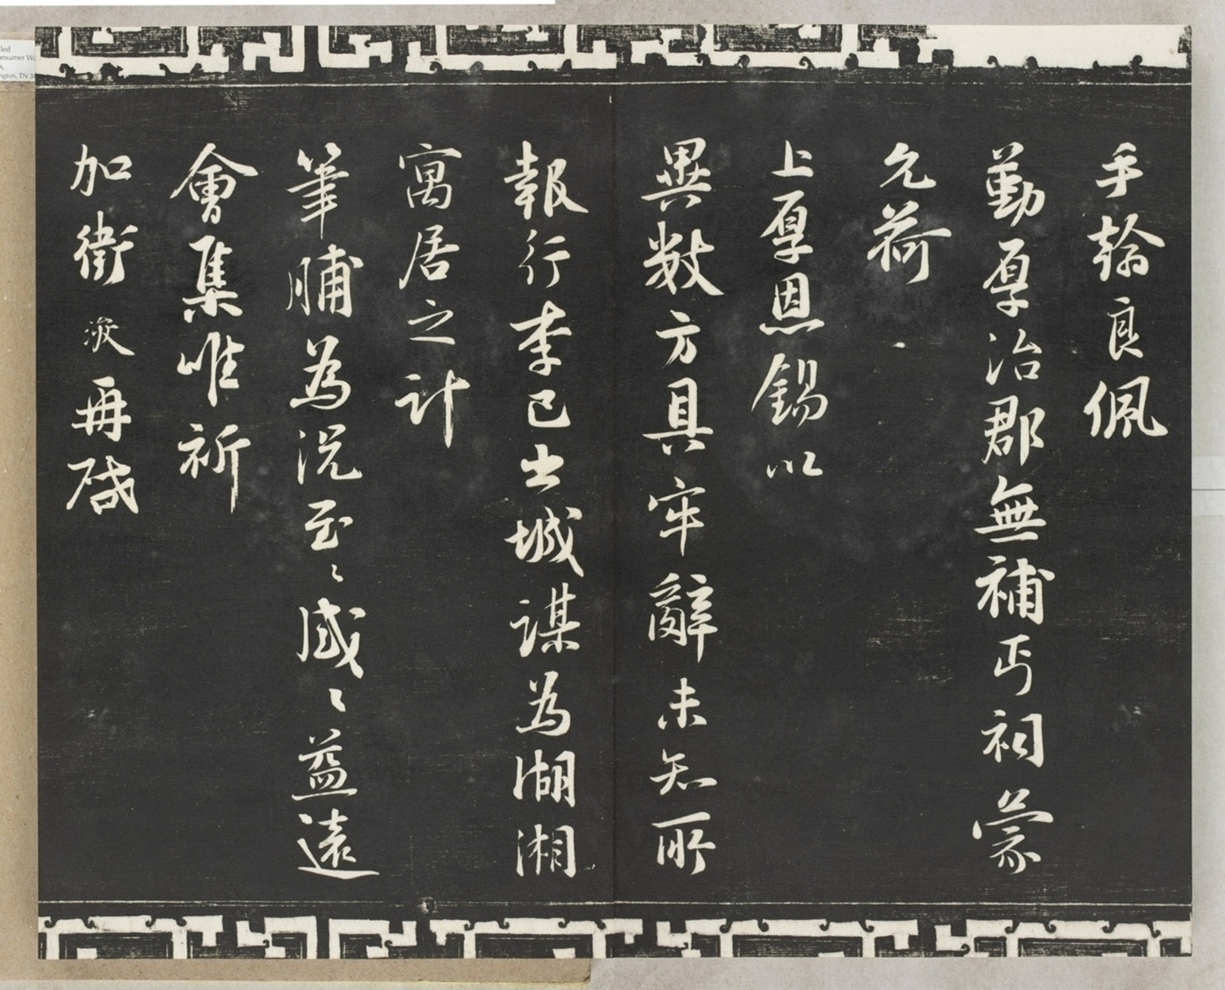 手翰良佩
勤厚治郡無補丐祠蒙
允荷
上厚恩錫以
異數方具牢辭未知所
報行李已出城謀為湖湘
寓居之計
筆脯為況至〻感〻益遠
會集唯祈
加衛浚再啟